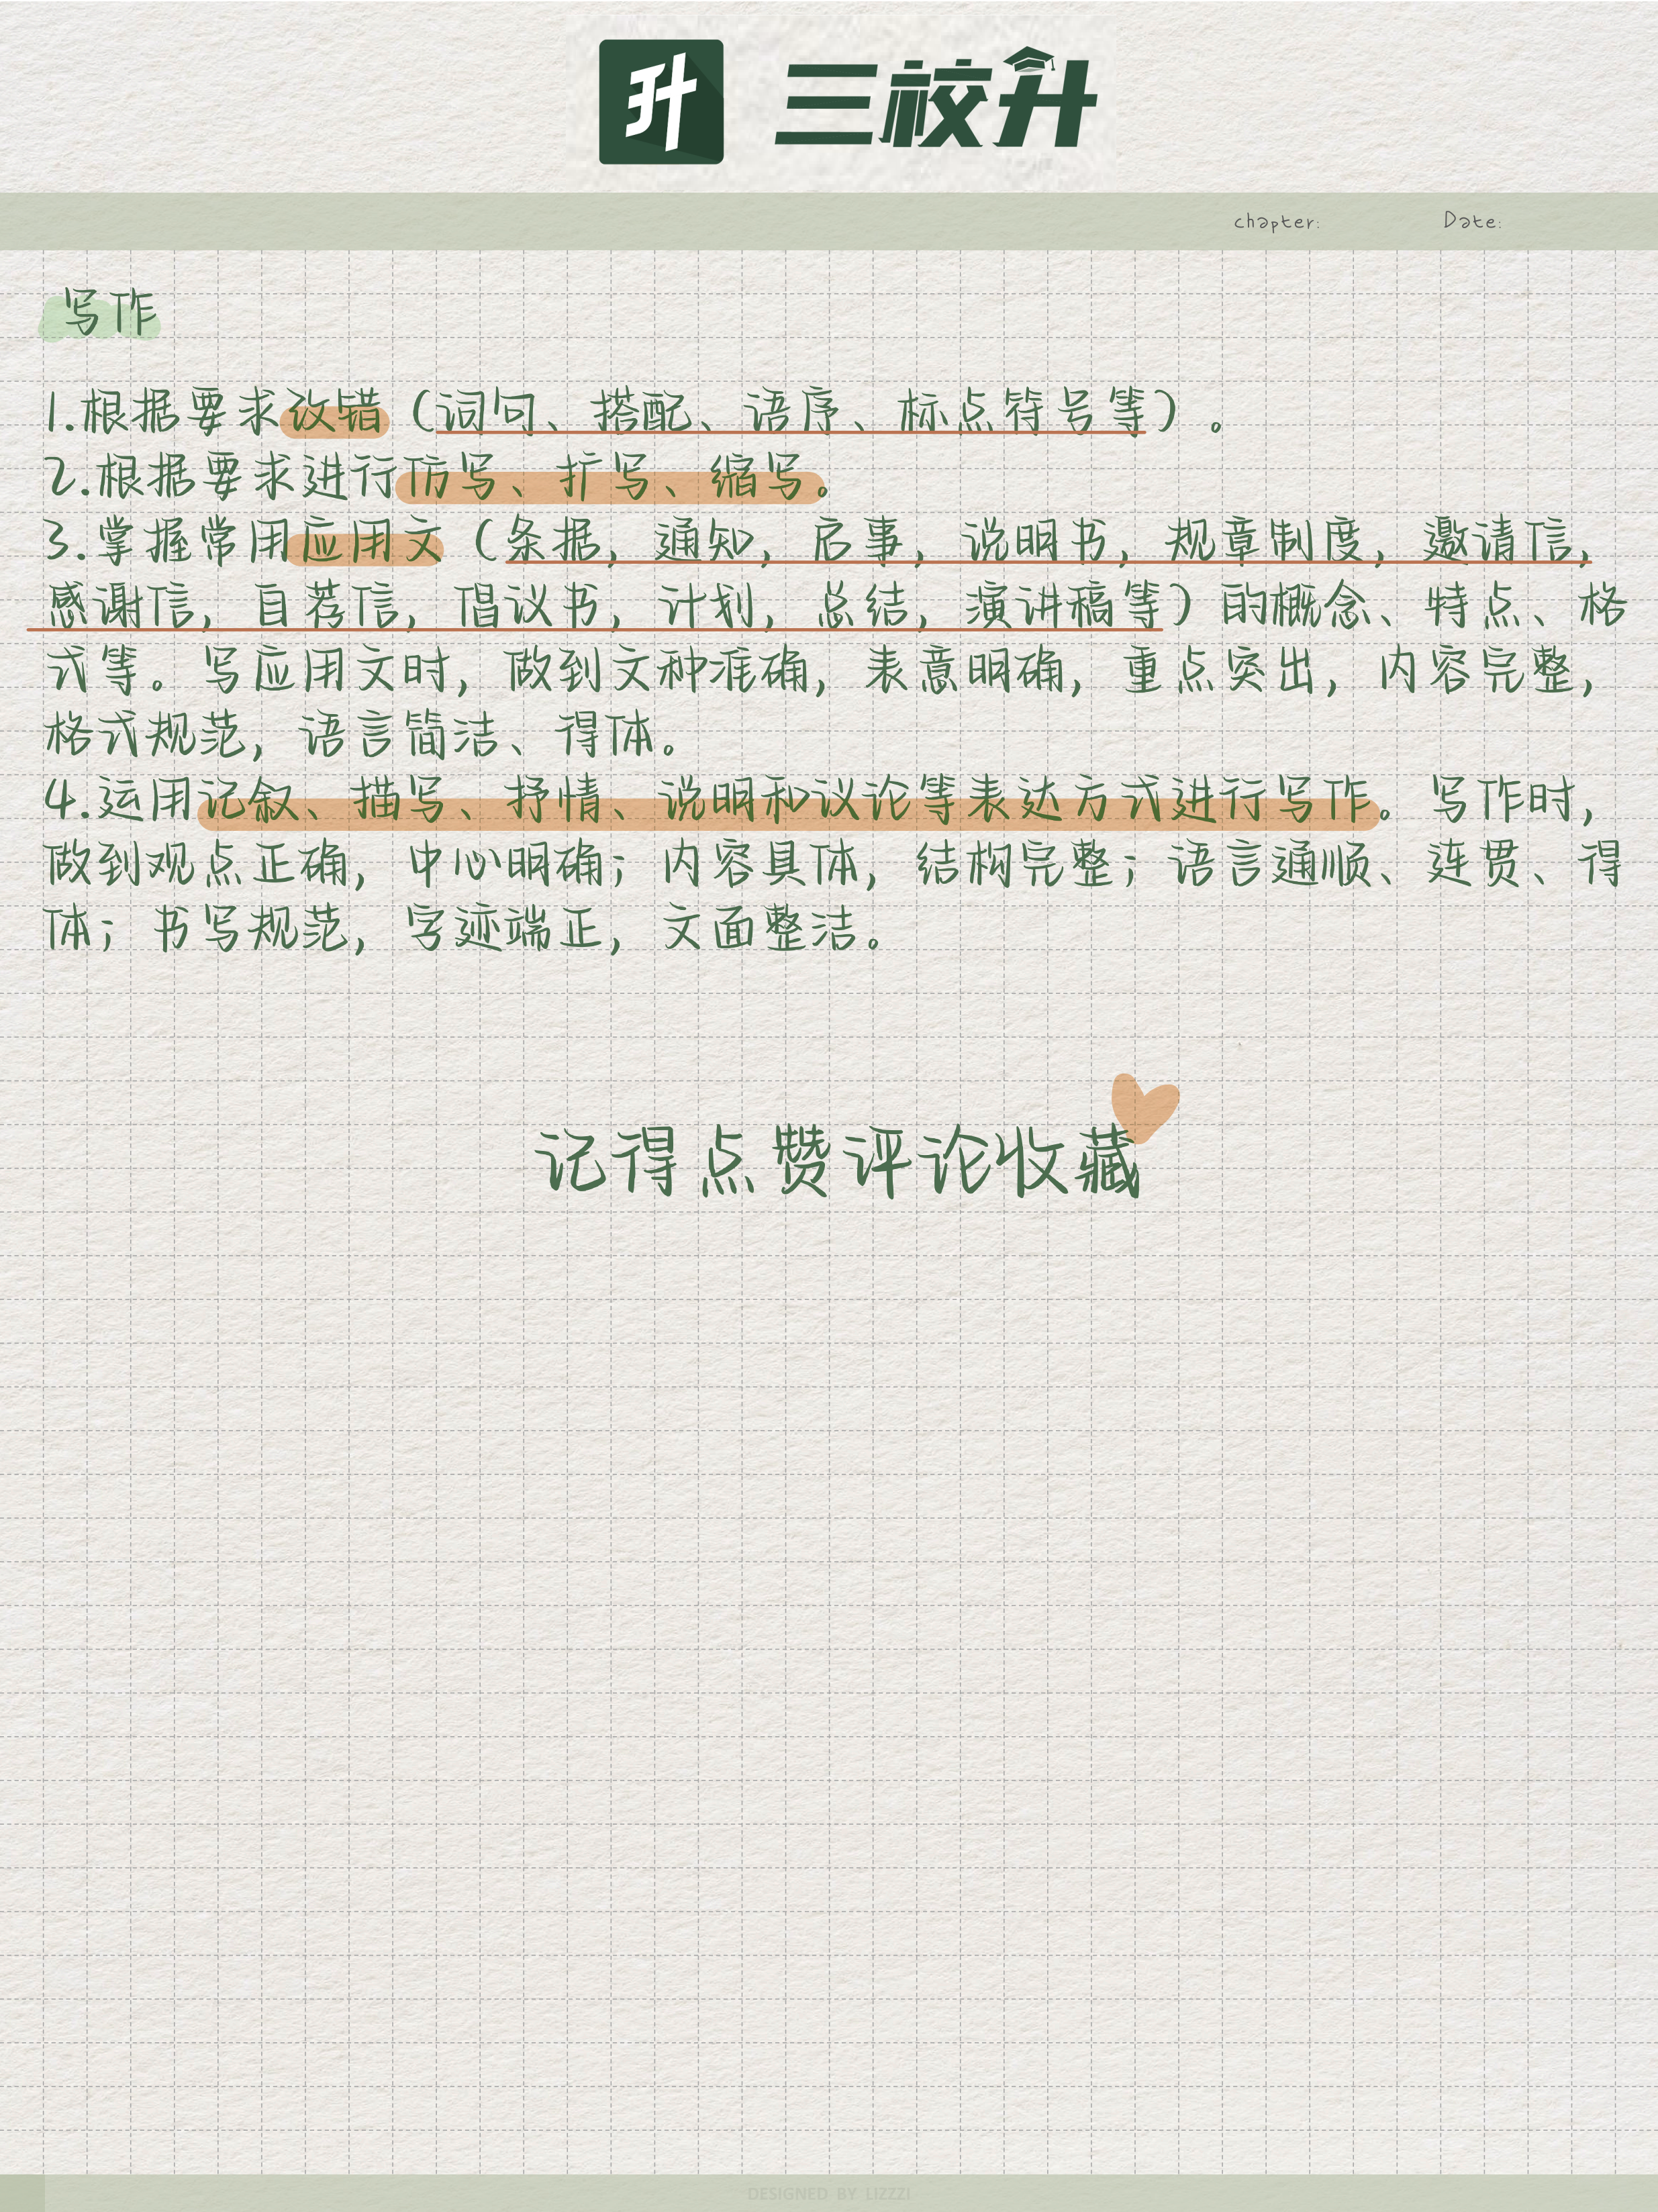 升 三校升
chapter: Date:
写作
1.根据要求改错（词句、搭配、语序、标点符号等）。
2.根据要求进行仿写、扩写、缩写。
3.掌握常用应用文（条据，通知，启事，说明书，规章制度，邀请信，
感谢信，自荐信，倡议书，计划，总结，演讲稿等）的概念、特点、格
式等。写应用文时，做到文种准确，表意明确，重点突出，内容完整，
格式规范，语言简洁、得体。
4.运用记叙、描写、抒情、说明和议论等表达方式进行写作。写作时，
做到观点正确，中心明确；内容具体，结构完整；语言通顺、连贯、得
体；书写规范，字迹端正，文面整洁。
记得点赞评论收藏
DESIGNED BY LIZZZI